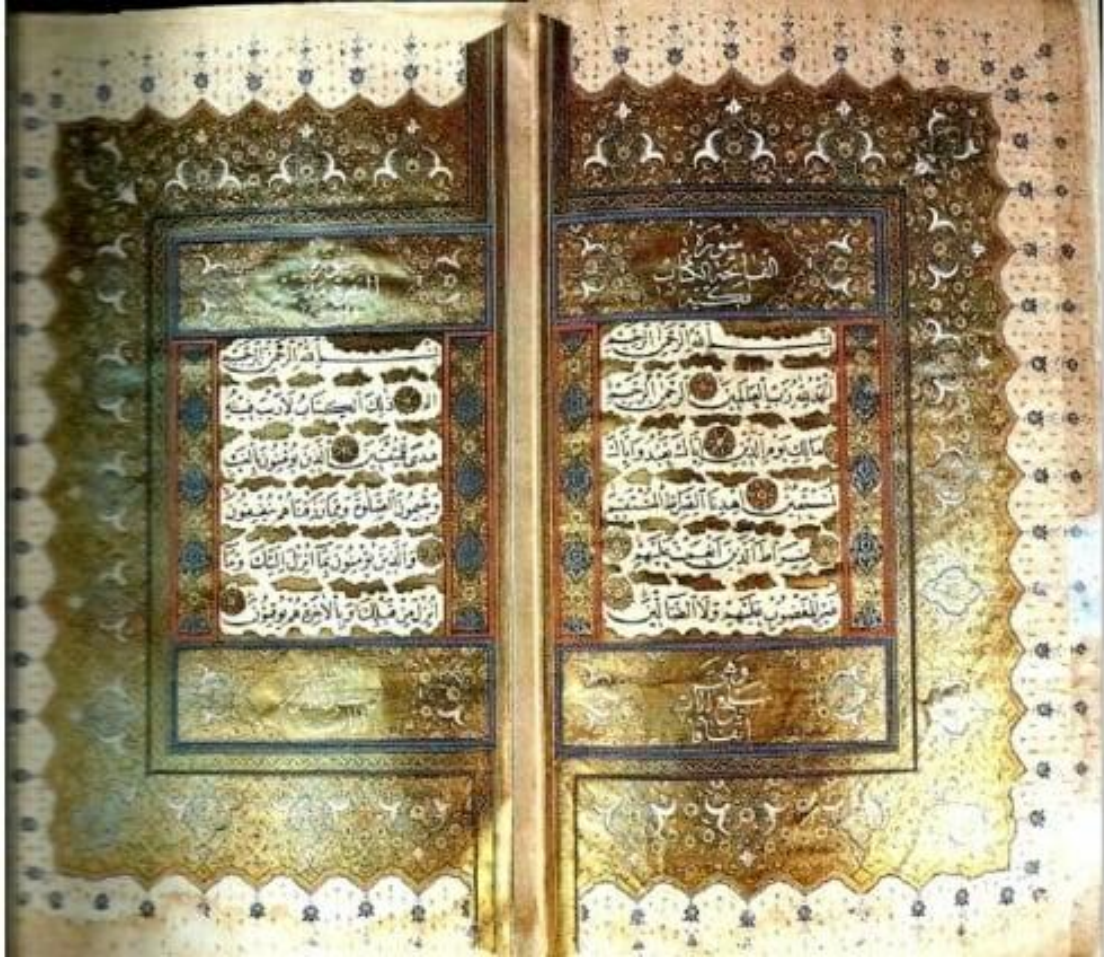 سُورَة
الفَاتِحَة الكِتَاب
مَكِّيَّة
بِسْمِ اللهِ الرَّحْمٰنِ الرَّحِيمِ
اَلْحَمْدُ لِلّٰهِ رَبِّ الْعَالَمِينَ الرَّحْمٰنِ الرَّحِيمِ
مَالِكِ يَوْمِ الدِّينِ اِيَّاكَ نَعْبُدُ وَاِيَّاكَ
نَسْتَعِينُ اِهْدِنَا الصِّرَاطَ الْمُسْتَقِيمَ
صِرَاطَ الَّذِينَ اَنْعَمْتَ عَلَيْهِمْ
غَيْرِ الْمَغْضُوبِ عَلَيْهِمْ وَلَا الضَّالِّينَ
وهي
سبع
بِسْمِ اللهِ الرَّحْمٰنِ الرَّحِيمِ
الم ذٰلِكَ الْكِتَابُ لَا رَيْبَ فِيهِ
هُدًى لِلْمُتَّقِينَ اَلَّذِينَ يُؤْمِنُونَ بِالْغَيْبِ
وَيُقِيمُونَ الصَّلٰوةَ وَمِمَّا رَزَقْنَاهُمْ يُنْفِقُونَ
وَالَّذِينَ يُؤْمِنُونَ بِمَا اُنْزِلَ اِلَيْكَ وَمَا
اُنْزِلَ مِنْ قَبْلِكَ وَبِالْاٰخِرَةِ هُمْ يُوقِنُونَ